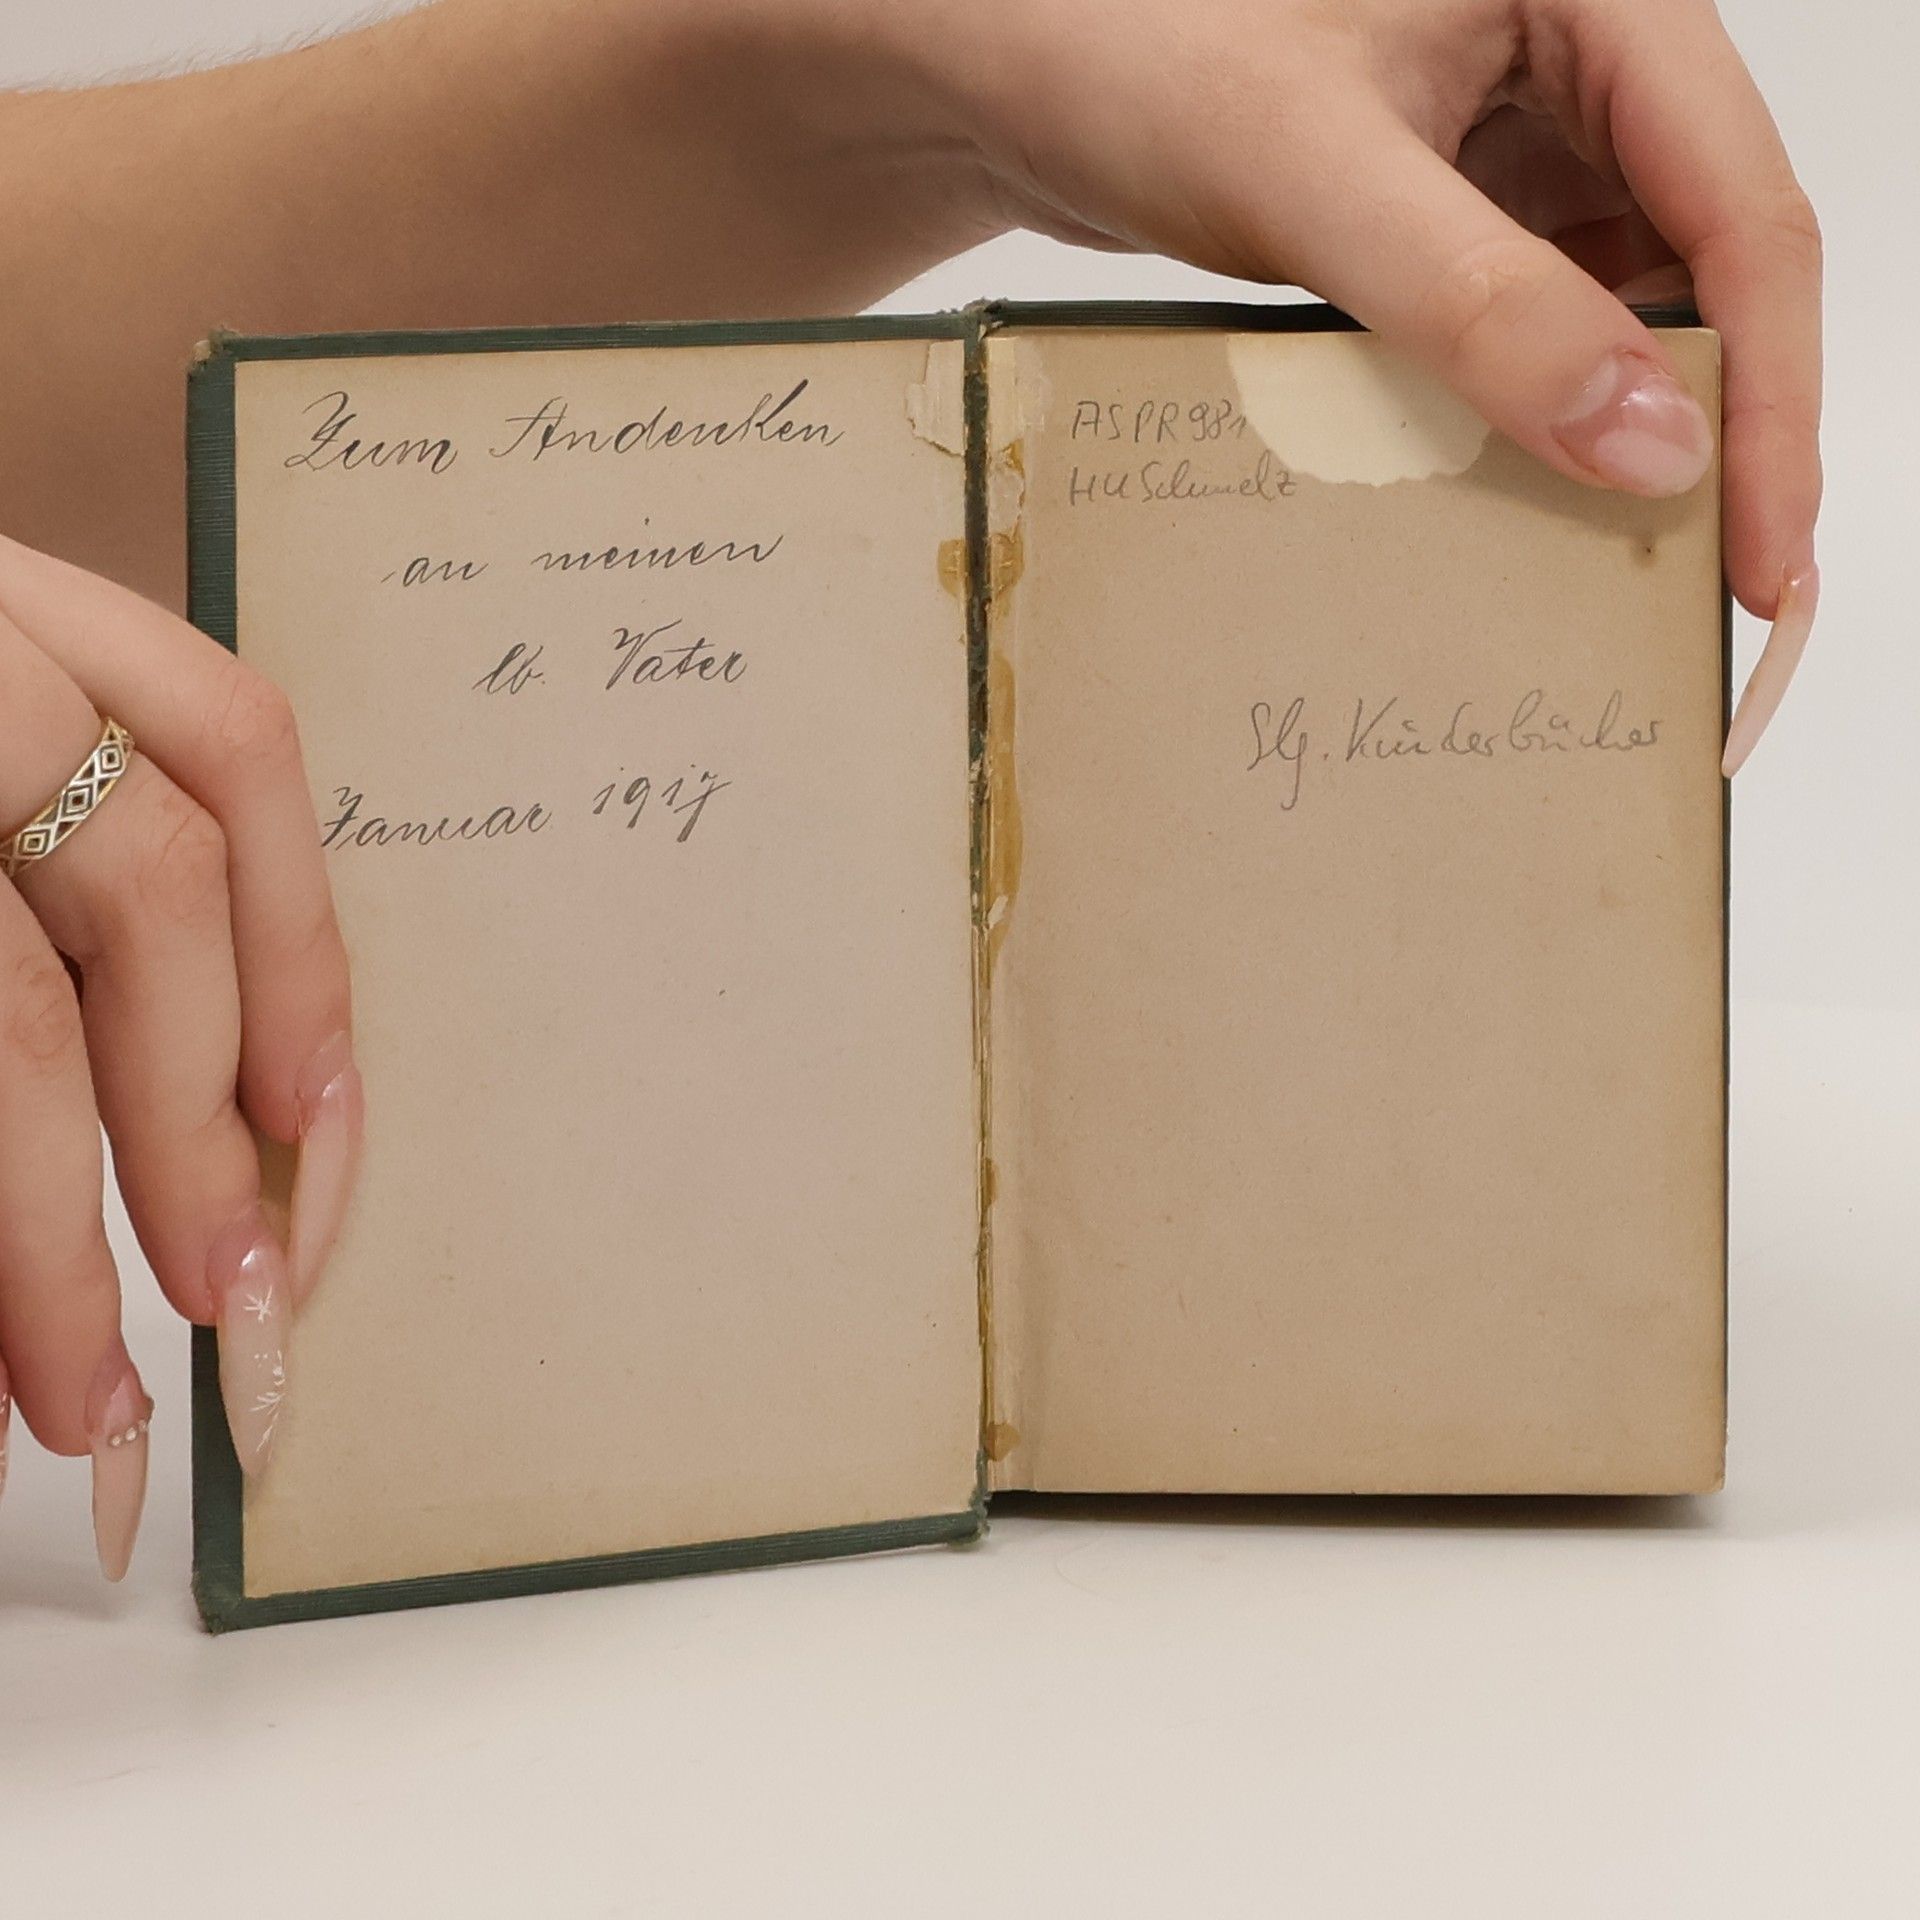 Zum Andenken
an meinen
lb. Vater
Januar 1917
ASPR 981
HU Schmelz
Slg. Kinderbücher